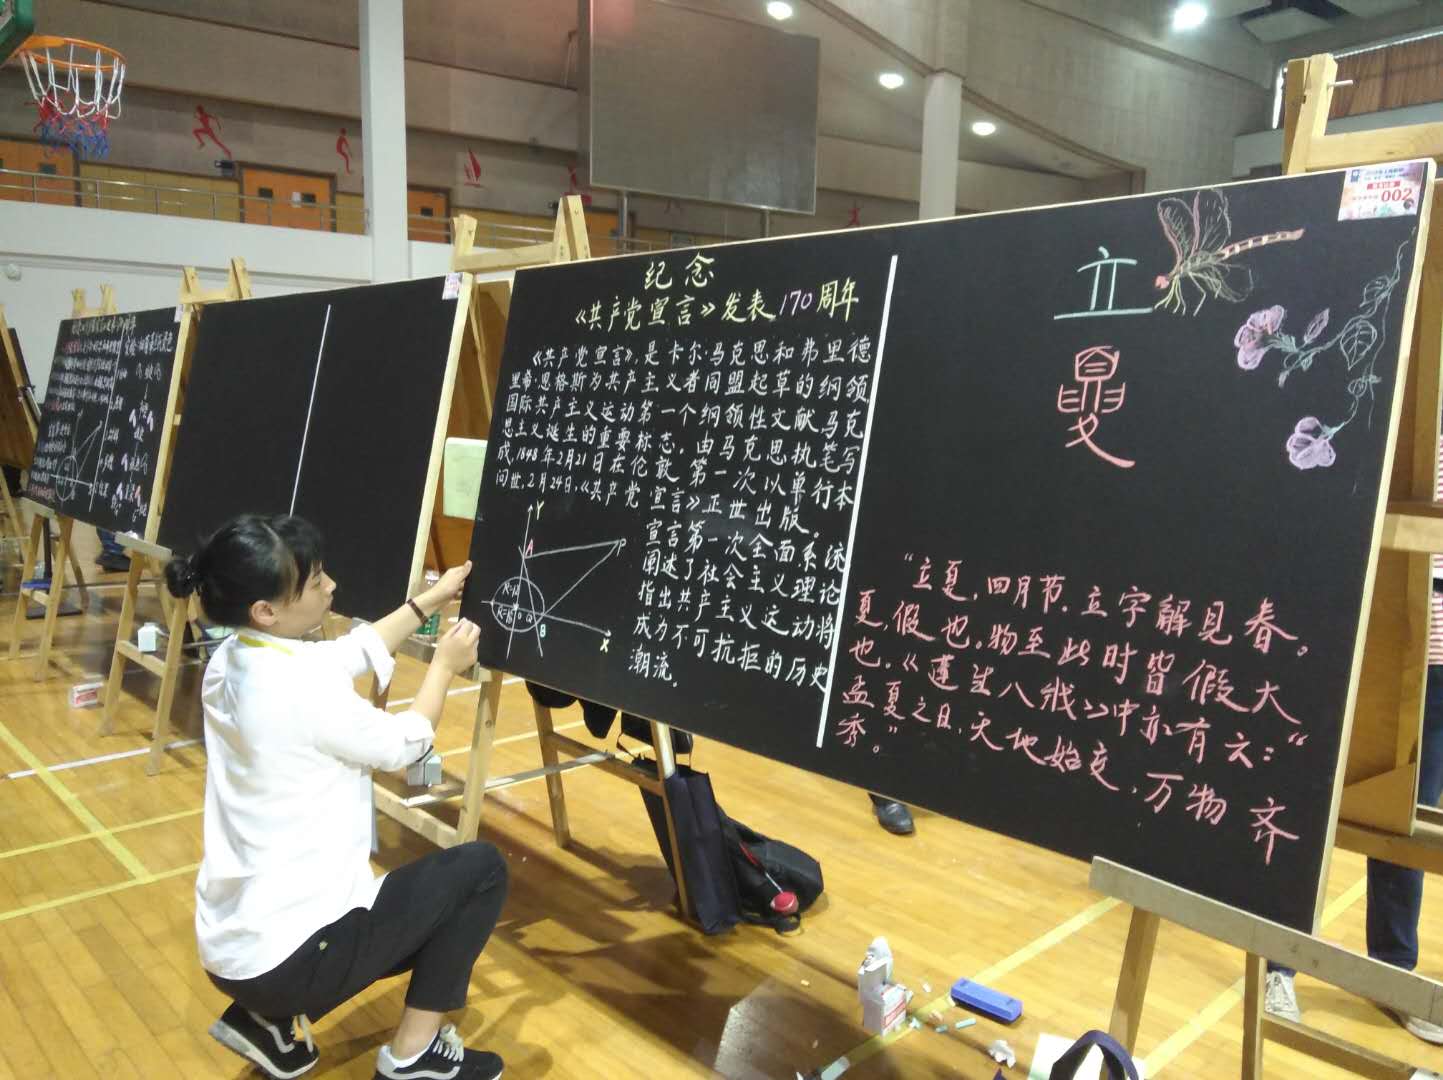 纪念
《共产党宣言》发表170周年
《共产党宣言》，是卡尔·马克思和弗里德
里希·恩格斯为共产主义者同盟起草的纲领
国际共产主义运动第一个纲领性文献，马克
思主义诞生的重要标志，由马克思执笔写
成，1848年2月21日在伦敦第一次以单行本
问世，2月24日，《共产党宣言》正世出版。
宣言第一次全面系统
阐述了社会主义理论
指出共产主义运动将
成为不可抗拒的历史
潮流。
Y
A
P
O
B
X
立
夏
“立夏，四月节，立字解见春。
夏，假也。物至此时皆假大
也。《莲生八戋》中亦有云：“
孟夏之日，天地始交，万物齐
秀。”
002